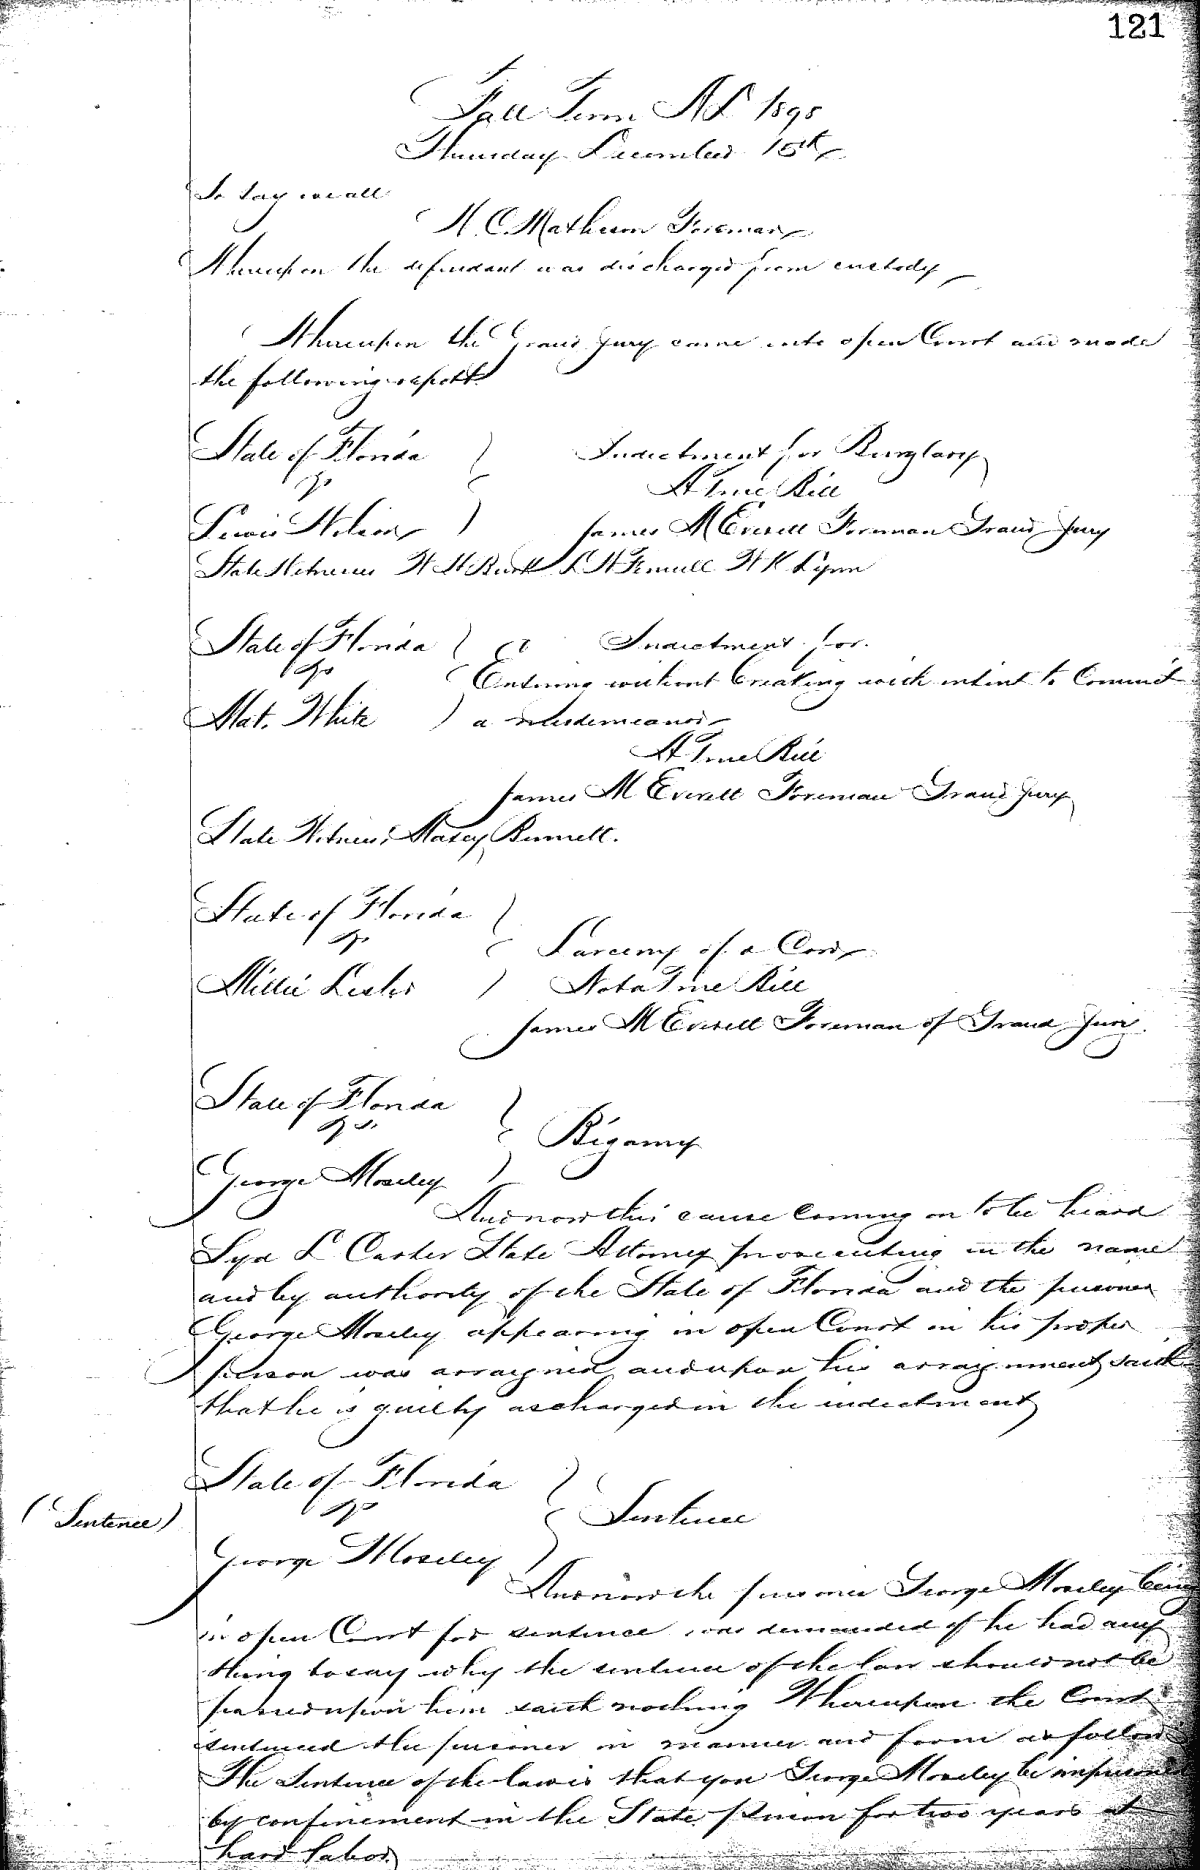 121
Fall Term AD 1898
Thursday December 15th
So say we all
H. C. Matheson Foreman
Whereupon the defendant was discharged from custody
Whereupon the Grand Jury came into open Court and made
the following report
State of Florida
vs
Lewis Indictment for Burglary
A True Bill
James M Everett Foreman Grand Jury
State Witnesses W K Lynn
State of Florida Indictment for
vs Entering without breaking with intent to Commit
Mat. White a misdemeanor
A True Bill
James M Everett Foreman Grand Jury
State Witness,
State of Florida
vs Larceny of a Cow
Millie Not a True Bill
James M Everett Foreman of Grand Jury.
State of Florida
vs. Bigamy
George Moseley
And now this cause coming on to be heard
Syd L Carter State Attorney prosecuting in the name
and by authority of the State of Florida and the prisoner
George Moseley appearing in open Court in his proper
person was arraigned and upon his arraignment saith
that he is guilty as charged in the indictment
State of Florida
(Sentence) vs Sentence
George Moseley
And now the prisoner George Moseley being
in open Court for sentence was demanded if he had any
thing to say why the sentence of the law should not be
passed upon him saith nothing Whereupon the Court
sentenced the prisoner in manner and form as follows
The Sentence of the law is that you George Moseley be imprisoned
by confinement in the State Prison for two years at
hard labor